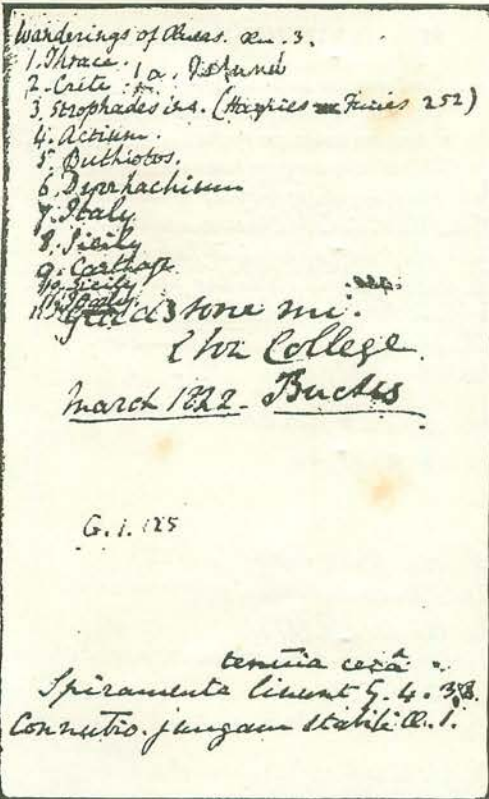 Wanderings of Æneas. Æn. 3.
1. Thrace.
2. Crete. a. Island
3. Strophades ins. (Harpies Furies 252)
4. Actium.
5. Buthrotos.
6. Dyrrhachium
7. Italy
8. Sicily
9. Carthage
10. Sicily
11. Italy
Gladstone mi.
Eton College.
March 1822. Bucks
G. 1. 125
tenuia cerâ
Spiramenta linunt G. 4. 38.
Connubio. jungam stabili Æ. 1.